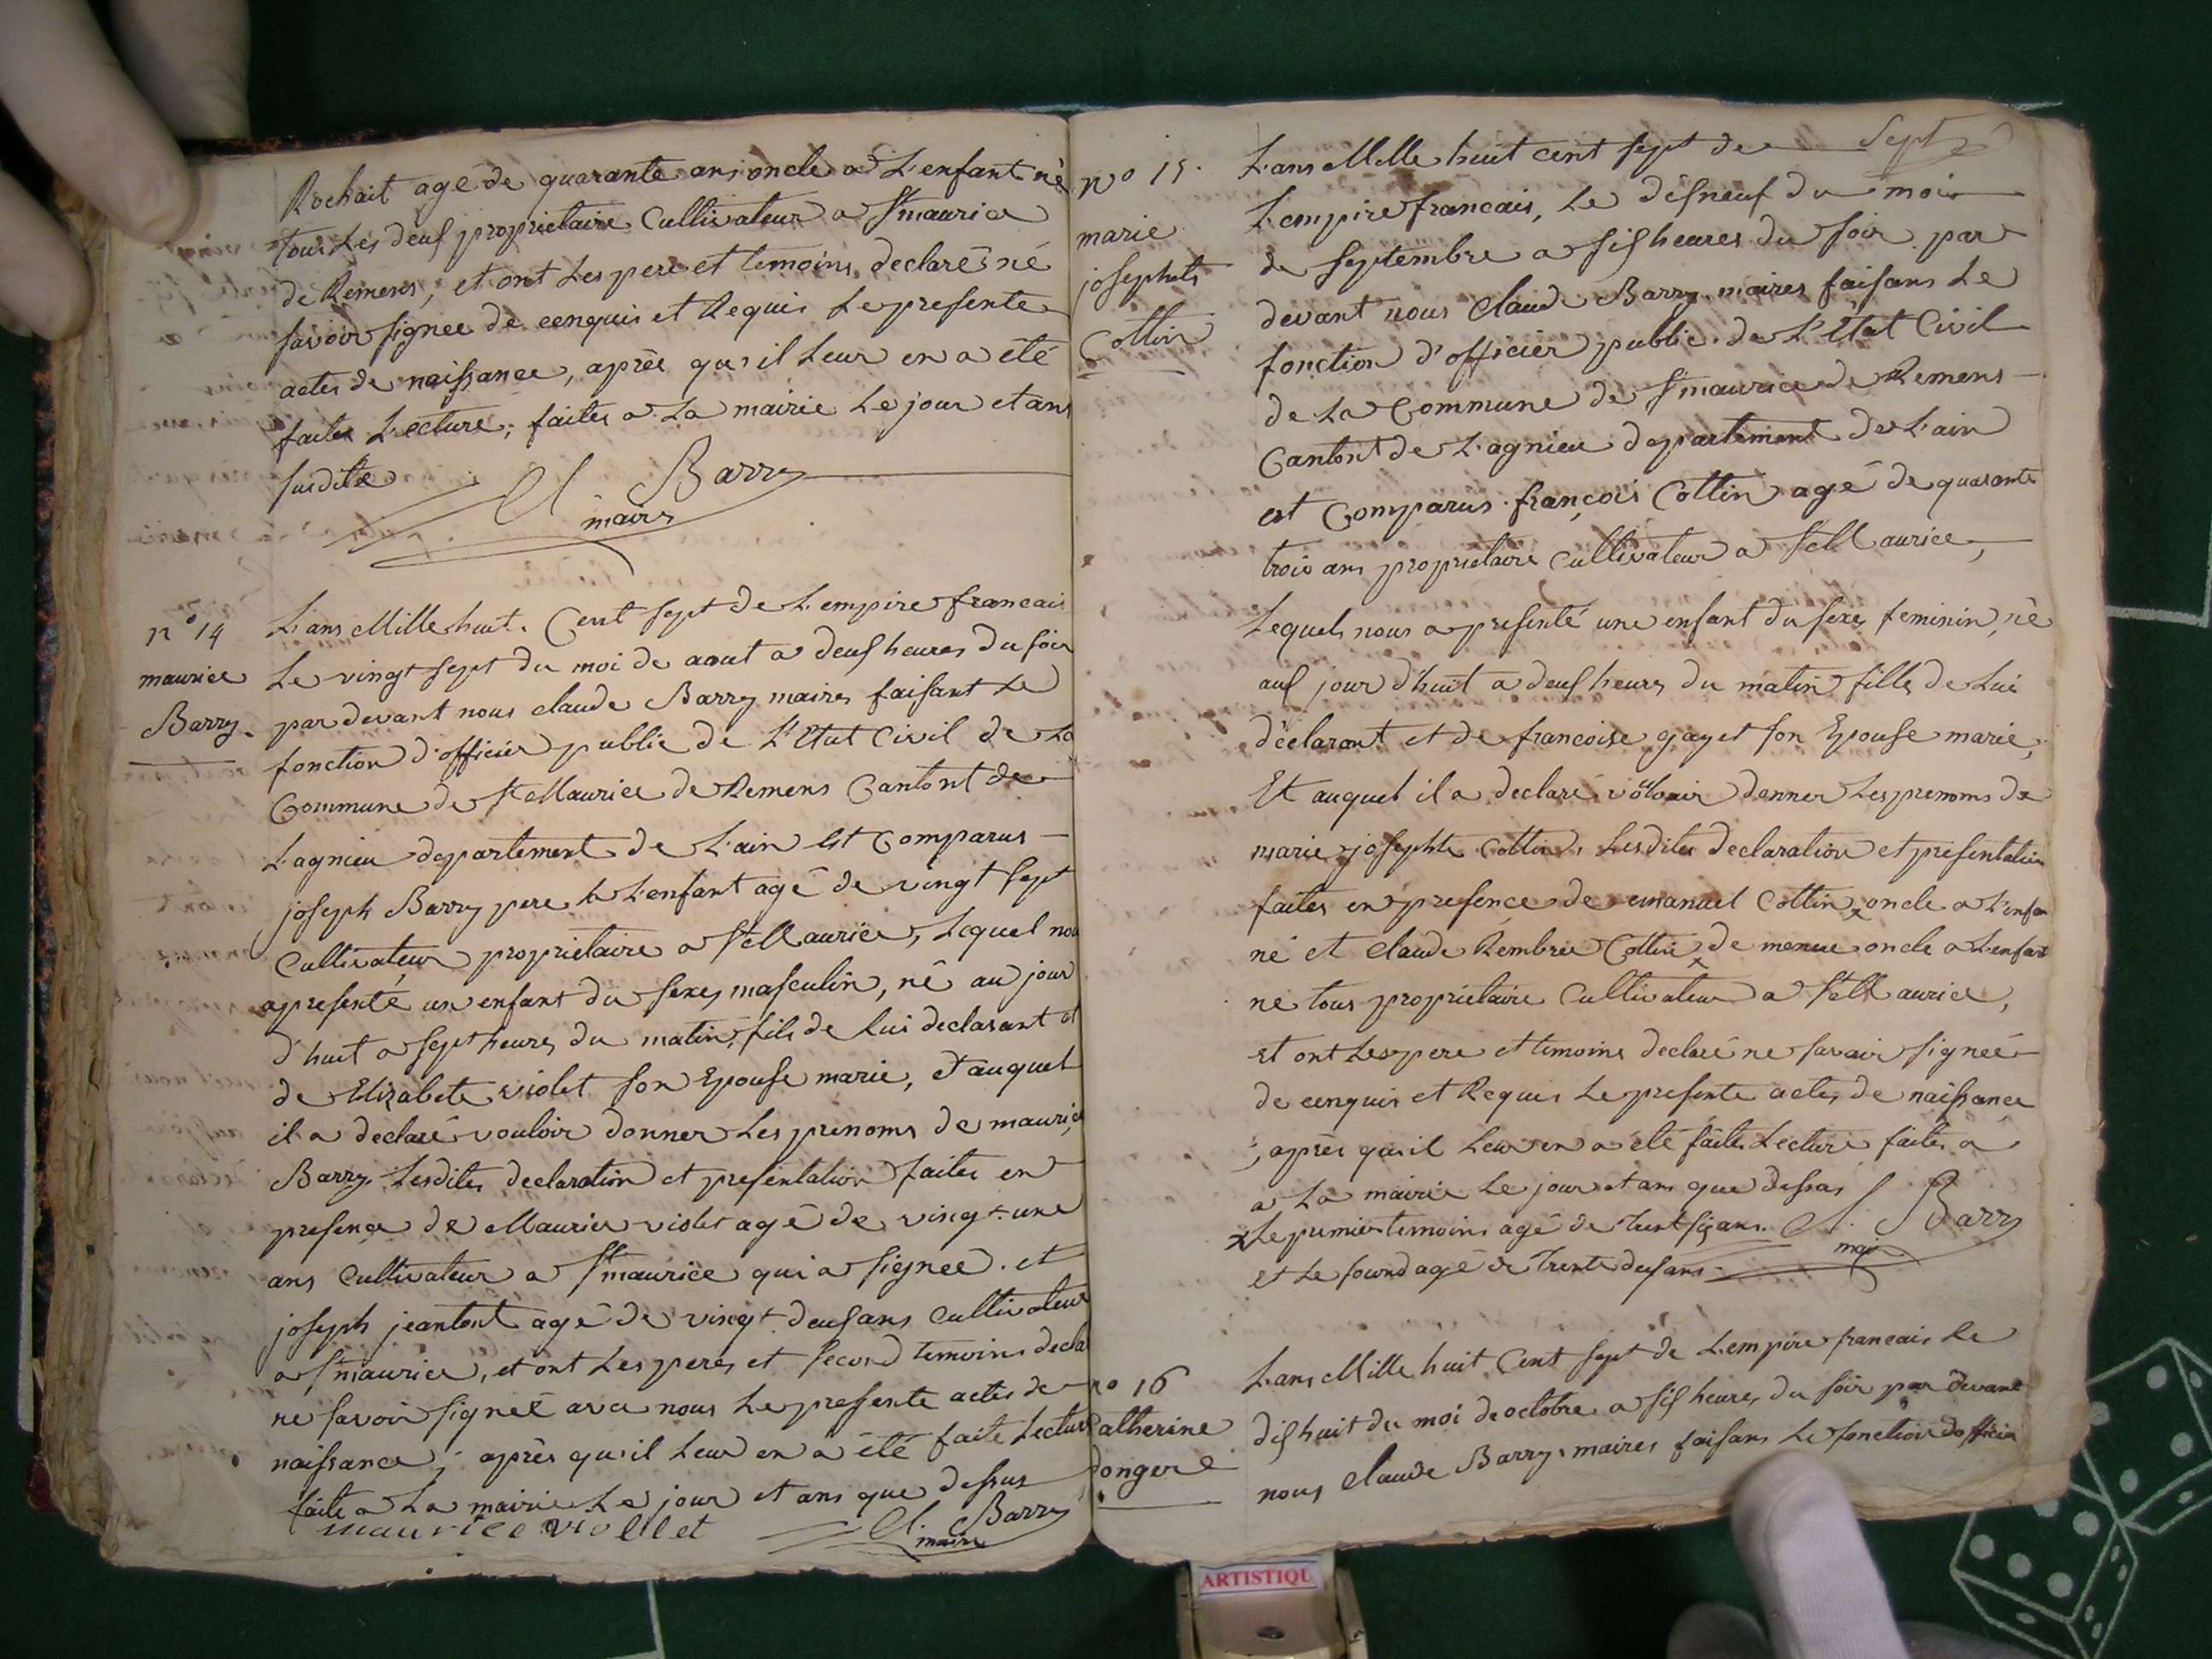 Rochait agé de quarante ans oncle a L'enfant né
tous Les deux proprietaire Cultivateur a St maurice
de Remens, et ont Les pere et temoins declarés né
savoir signee de cenquis et Requis Le presente
actes de naissance, aprèe qu'il Leur en a été
faites Lecture; faites a La mairie Le jour et ans
susdite
Cl. Barry
maires
n° 14
maurice
Barry.
L'ans Mille huit. Cent sept de L'empire francais
Le vingt sept du moi de aout a deux heures du soir
par devant nous claude Barry maires faisant Le
fonction d'officier public de L'Etat Civil de La
Commune de St Maurice de Remens Cantont de
Lagnieu departement de L'ain est Comparus
joseph Barry pere a L'enfant agé de vingt sept
Cultivateur proprietaire a St Maurice, Lequel nou
a presenté un enfant du sexes masculin, né au jour
d'huit a sept heures du matin, fils de Lui declarant et
de Elizabete violet son Epouse marie, et auquel
il a declaré vouloir donner Les prenoms de maurice
Barry. Lesdites declaration et presentation faites en
presence de Maurice violet agé de vingt une
ans Cultivateur a St maurice qui a signeé. et
joseph jeantont agé de vingt deux ans Cultivateur
a St maurice, et ont Les peres et second temoins decla
ne savoir signeé avec nous Le presente actes de
naissance; aprés qu'il Leur en a été faite Lecture
faite a La mairie Le jour et ans que dessus
maurice violet
Cl. Barry
maire
n° 15.
marie
josephets
Cottin
L'ans Mille huit cent sept de Sept
L'empire francais, Le disneuf du moi
de septembre a sis heures du soir par
devant nous Claude Barry maires faisans Le
fonction d'officier public de L'Etat Civil
de La Commune de St maurice de Remens
Cantont de Lagnieu departement de L'ain
est Comparus françois Cottin agé de quarante
trois ans proprietaire Cultivateur a St Maurice,
Lequels nous a presenté une enfant du sexe feminin, né
aux jour d'huit a deux heures du matin fille de Lui
déclarant et de francoise gayet son Epouse marie,
Et auquel il a declaré voulouir donner Les prenoms de
marie josephte Cottin. Lesdites declaration et presentation
faites en presence de emanuel Cottin x oncle a L'enfan
né et Claude Rembrée Cottin x de meme oncle a L'enfant
né tous proprietaire Cultivateur a St Maurice,
et ont Les pere et temoins declaré ne savoir signeé
de cenquis et Requis Le presente actes de naissance
, aprés qu'il Leur en a été faites Lecture faites a
a La mairie Le jour et ans que dessus
Cl. Barry
mair
x Le premier temoins agé de Trent six ans.
et Le second agé de Trente deux ans
n° 16
Catherine
Dongere
L'ans Mille huit Cent sept de L'empire francais Le
dishuit du moi de octobre a sis heures du soir par devant
nous Claude Barry maires faisans Le fonction d'officier
ARTISTIQU